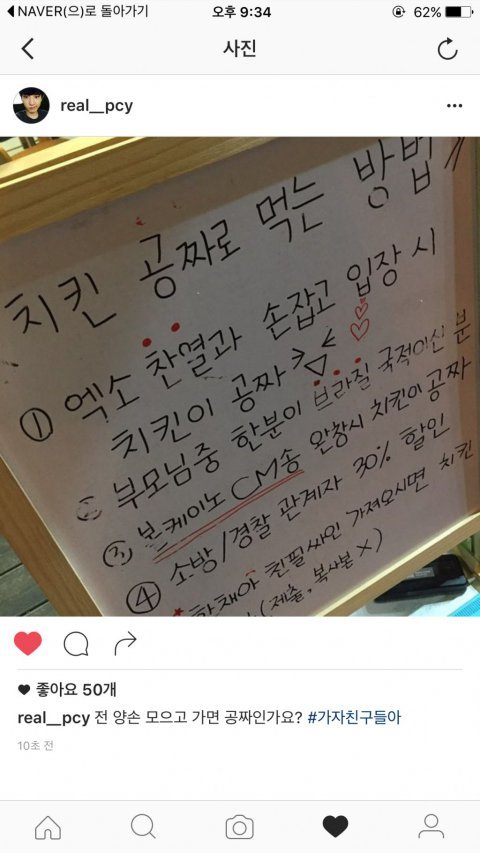 NAVER(으)로 돌아가기 오후 9:34 62%
사진
real__pcy
치킨 공짜로 먹는 방법
① 엑소 찬열과 손잡고 입장 시
치킨이 공짜
② 부모님중 한분이 브라질 국적이신 분
③ 본케이노 CM송 완창시 치킨이 공짜
④ 소방/경찰 관계자 30% 할인
친필싸인 가져오시면 치킨
(제출, 복사본 X)
좋아요 50개
real__pcy 전 양손 모으고 가면 공짜인가요? #가자친구들아
10초 전